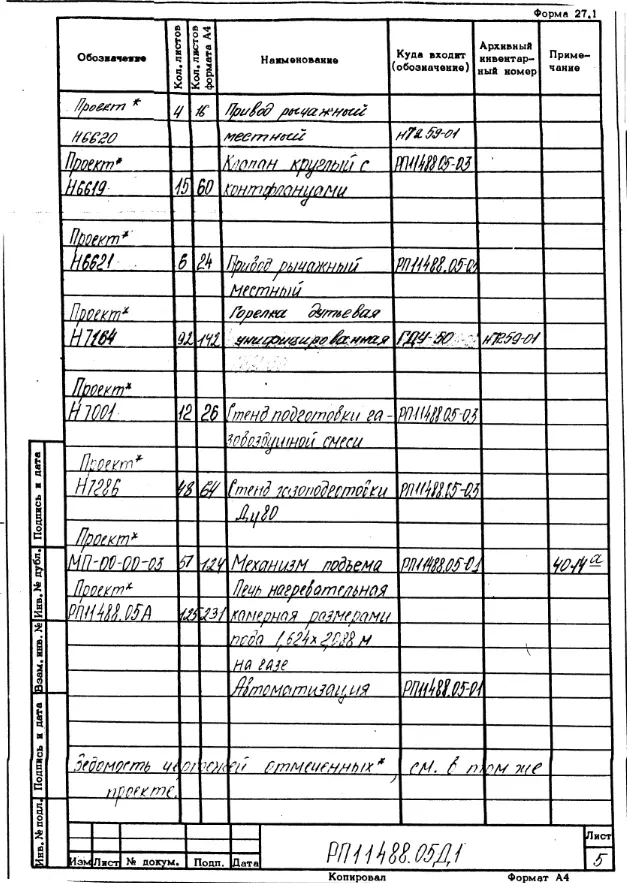 Форма 27.1
Обозначение Кол. листов Кол. листов формата А4 Наименование Куда входит (обозначение) Архивный инвентар-ный номер Приме-чание
Проект* 4 16 Привод рычажный
Н6620 местный Н7259-01
Проект* Клапан круглый с РП11488.05-03
Н6619 15 60 контфланцами
Проект*
Н6621 6 24 Привод рычажный РП11488.05-03
местный
Проект* Горелка дутьевая
Н7164 92 142 унифицированная ГДУ-50 Н7259-01
Проект*
Н7001 12 26 Стенд подготовки га- РП11488.05-03
зовоздушной смеси
Проект*
Н7286 48 64 Стенд РП11488.05-03
Ду80
Проект*
МП-00-00-03 57 124 Механизм подъема РП11488.05-01 40-14а
Проект* Печь нагревательная
РП11488.05А 125 231 камерная размерами
пода 1,624х2,088 м
на газе
Автоматизация РП11488.05-01
Ведомость чертежей отмеченных*, см. в том же
проекте.
Инв. № подл. Подпись и дата Взам. инв. № Инв. № дубл. Подпись и дата
Изм Лист № докум. Подп. Дата
РП11488.05Д1
Лист
5
Копировал Формат А4